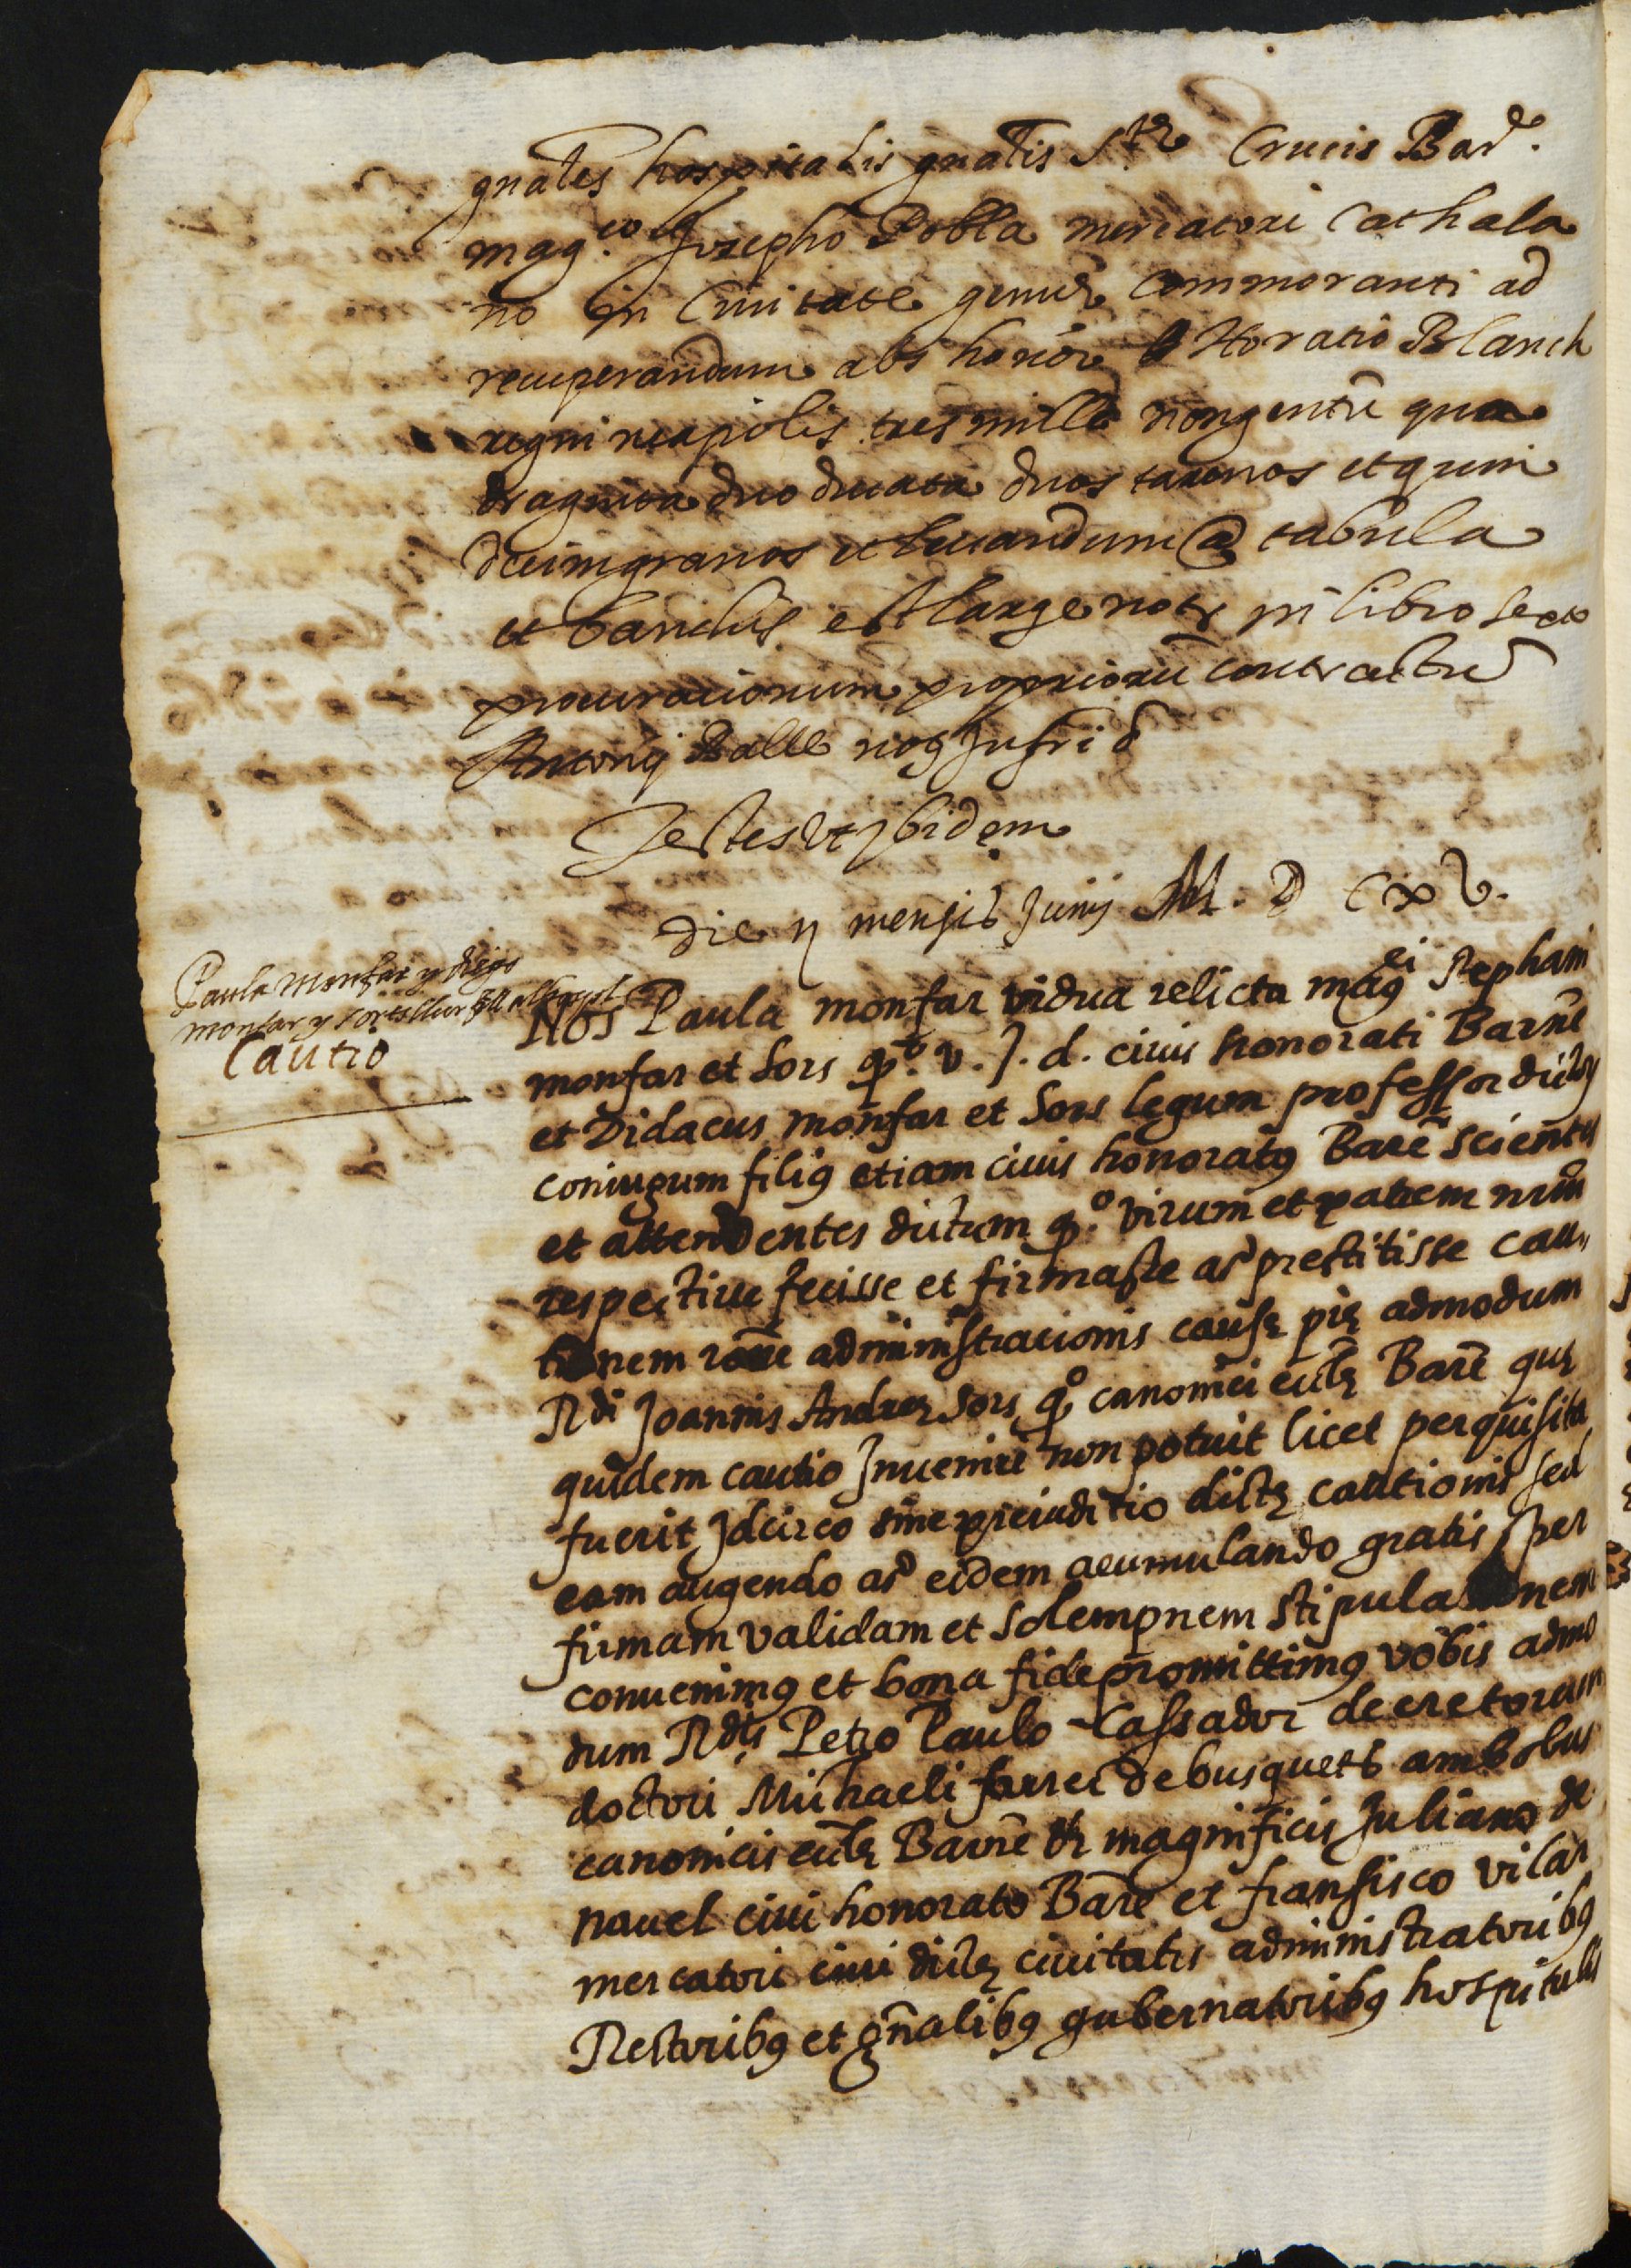 gnales hospitalis gnalis Stę Crucis Bar̃.
mag.co Josepho Pobla mercatori Cathala
no in Civitate genuę commoranti ad
recuperandum abs honor Horatio Blanch
regni neapolis tres mille nongentũ qua
draginta duo ducata duos tarenos et quin
decim granos et levandum @ tabula
et banchis est large notę in libro sexto
procurationum propriorũ contractuũ
Antonij Batlle noꝯ Infri
Testes vt jbidem
die ij mensis Junij M. D C x V.
Paula Monfar y diego
monfar y sors
Cautio
Nos Paula monfar vidua relicta magci stephani
monfar et Sors q.º v. J. d. civis honorati Barnẽ
et Didacus monfar et Sors legum professor dictoꝝ
coniugum filiꝯ etiam civis honoratꝯ Barẽ scientes
et attendentes dictum q.º virum et patrem nrm̃
respective fecisse et firmasse ac prestitisse cau
tionem rõne administrationis causę pię admodum
Rdi Joannis Andreę Sors qº canonici eccłę Barẽ quę
quidem cautio Inveniri non potuit licet perquisita
fuerit Jdcirco sine preiuditio dictę cautionis sed
eam augendo ac eidem acumulando gratis per
firmam validam et solempnem stipulationem
convenimꝯ et bona fide promittimꝯ vobis admo
dum Rdis Petro Paulo Cassador decretorum
doctori Michaeli ferrer de busquets ambobus
canonicis eccłę Barnẽ et magnificis Juliano de
navel civi honorato Barẽ et fransisco vilar
mercatori civi dictę civitatis administratoribꝯ
Rectoribꝯ et gñalibꝯ gubernatoribꝯ hospitalis